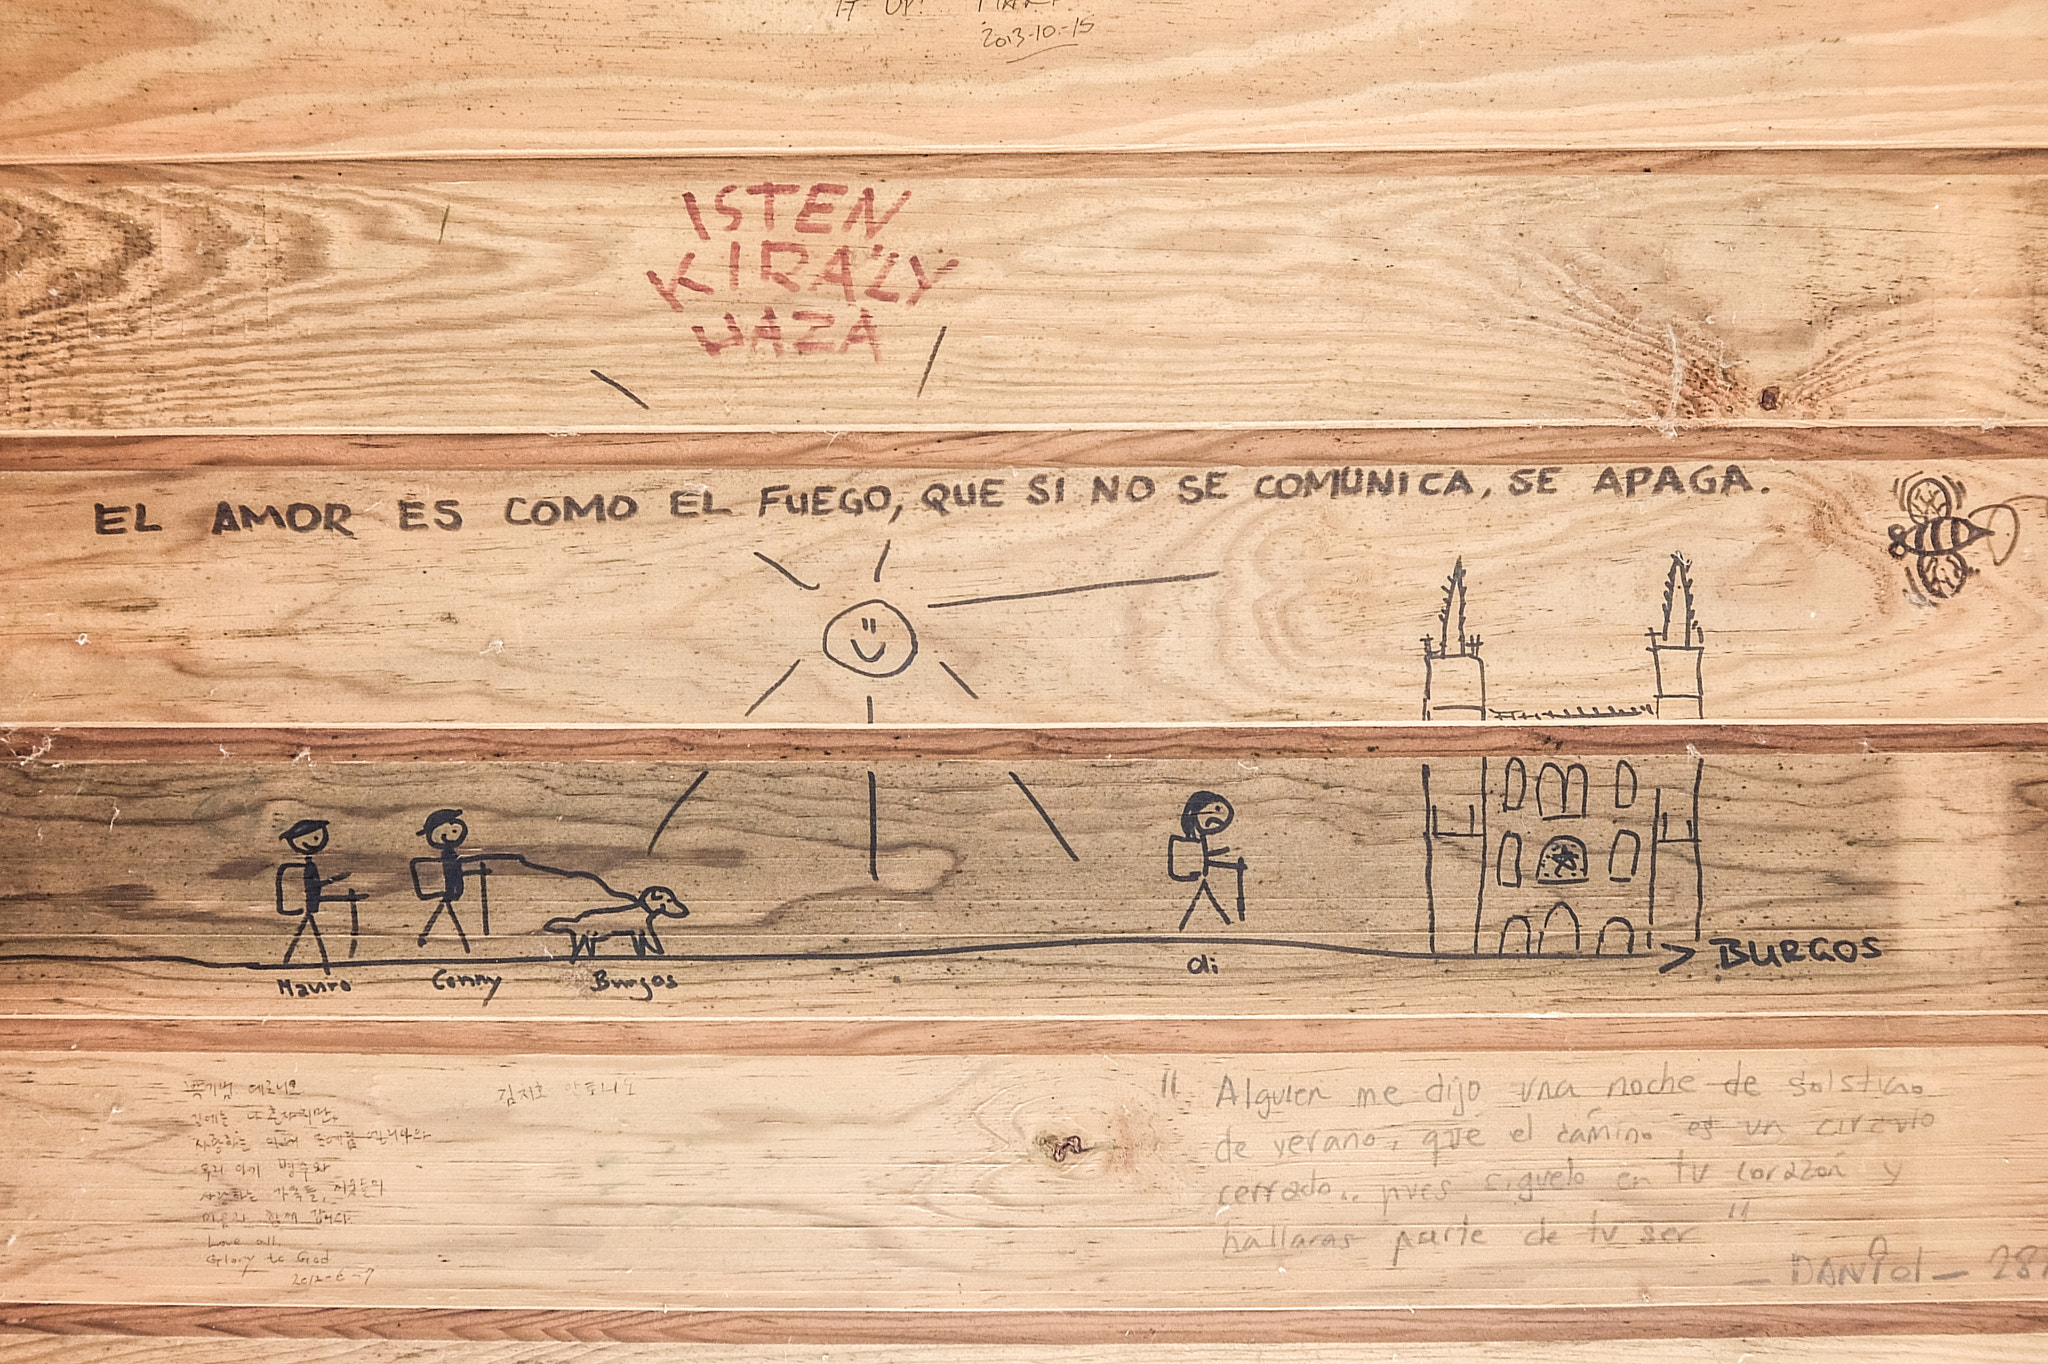 IT UP!
2013-10-15
ISTEN
KIRÁLY
HAZA
EL AMOR ES COMO EL FUEGO, QUE SI NO SE COMUNICA, SE APAGA.
Mauro Conny Burgos Oli
BURGOS
김지호 안토니오
사랑하는
우리 아기
사랑하는 가족들, 이웃들의
함께 갑니다.
Love all.
Glory to God
2012-6-7
" Alguien me dijo una noche de solsticio
de verano, que el camino es un circulo
cerrado.. pues siguelo en tu corazón y
hallaras parte de tu ser "
- DANiel - 28